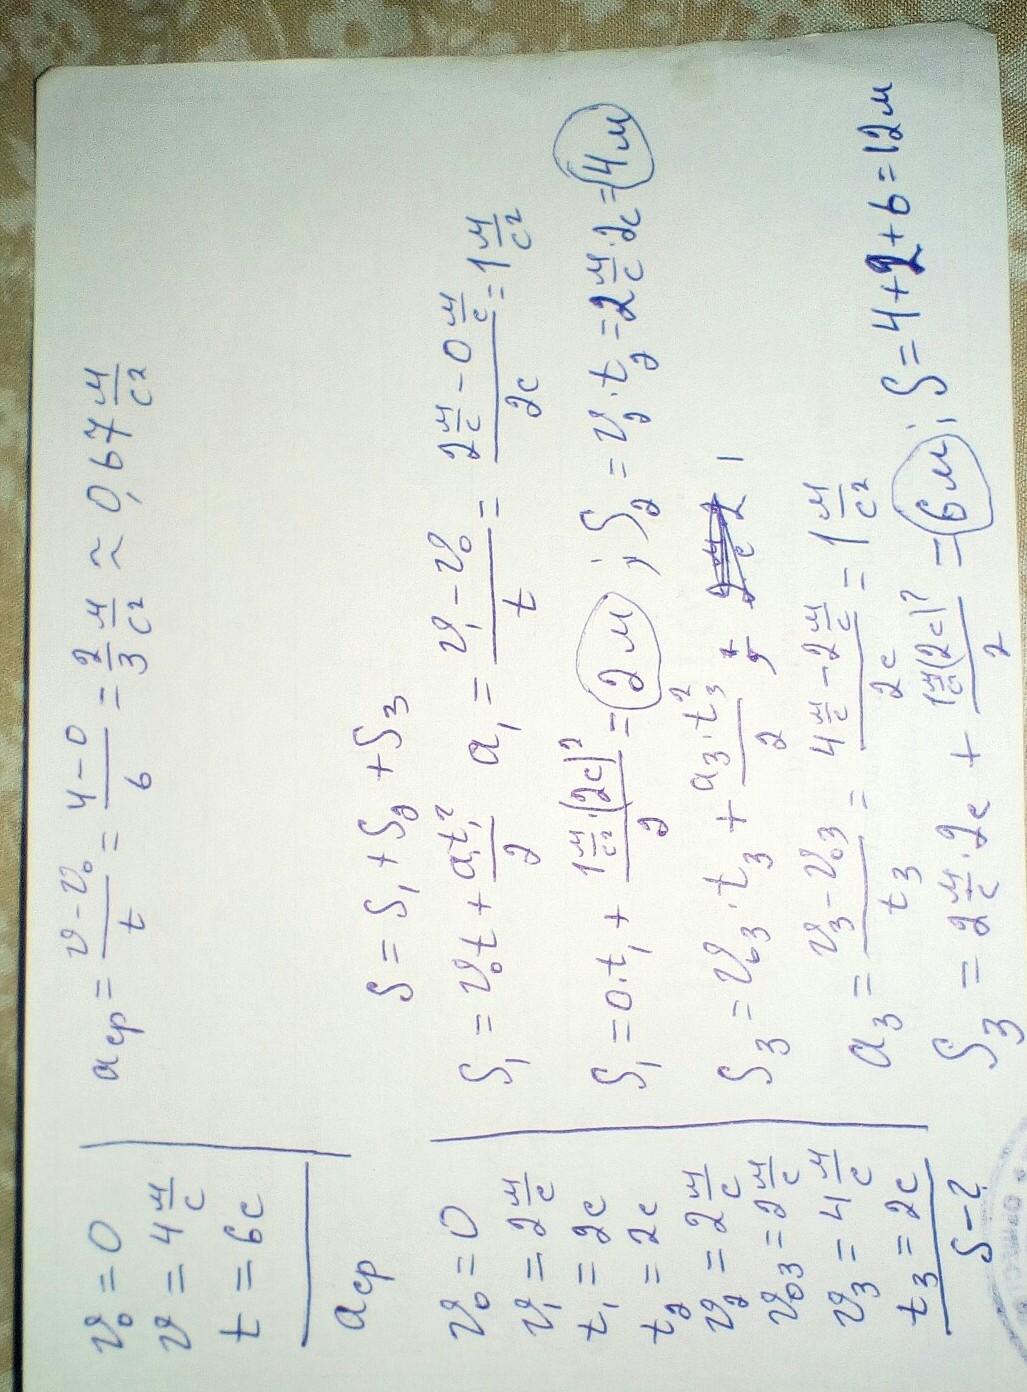 v₀ = 0
v = 4 м/с
t = 6с
aср
aср = (v - v₀)/t = (4 - 0)/6 = 2/3 м/с² ≈ 0,67 м/с²
v₀ = 0
v₁ = 2 м/с
t₁ = 2с
t₂ = 2с
v₂ = 2 м/с
v₀₃ = 2 м/с
v₃ = 4 м/с
t₃ = 2с
S - ?
S = S₁ + S₂ + S₃
S₁ = v₀t + a₁t₁²/2 a₁ = (v₁ - v₀)/t = (2 м/с - 0 м/с)/2с = 1 м/с²
S₁ = 0·t₁ + 1 м/с²·(2с)²/2 = 2 м ; S₂ = v₂·t₂ = 2 м/с·2с = 4 м
S₃ = v₀₃·t₃ + a₃·t₃²/2 ,
a₃ = (v₃ - v₀₃)/t₃ = (4 м/с - 2 м/с)/2с = 1 м/с²
S₃ = 2 м/с·2с + 1 м/с²(2с)²/2 = 6 м ; S = 4 + 2 + 6 = 12 м